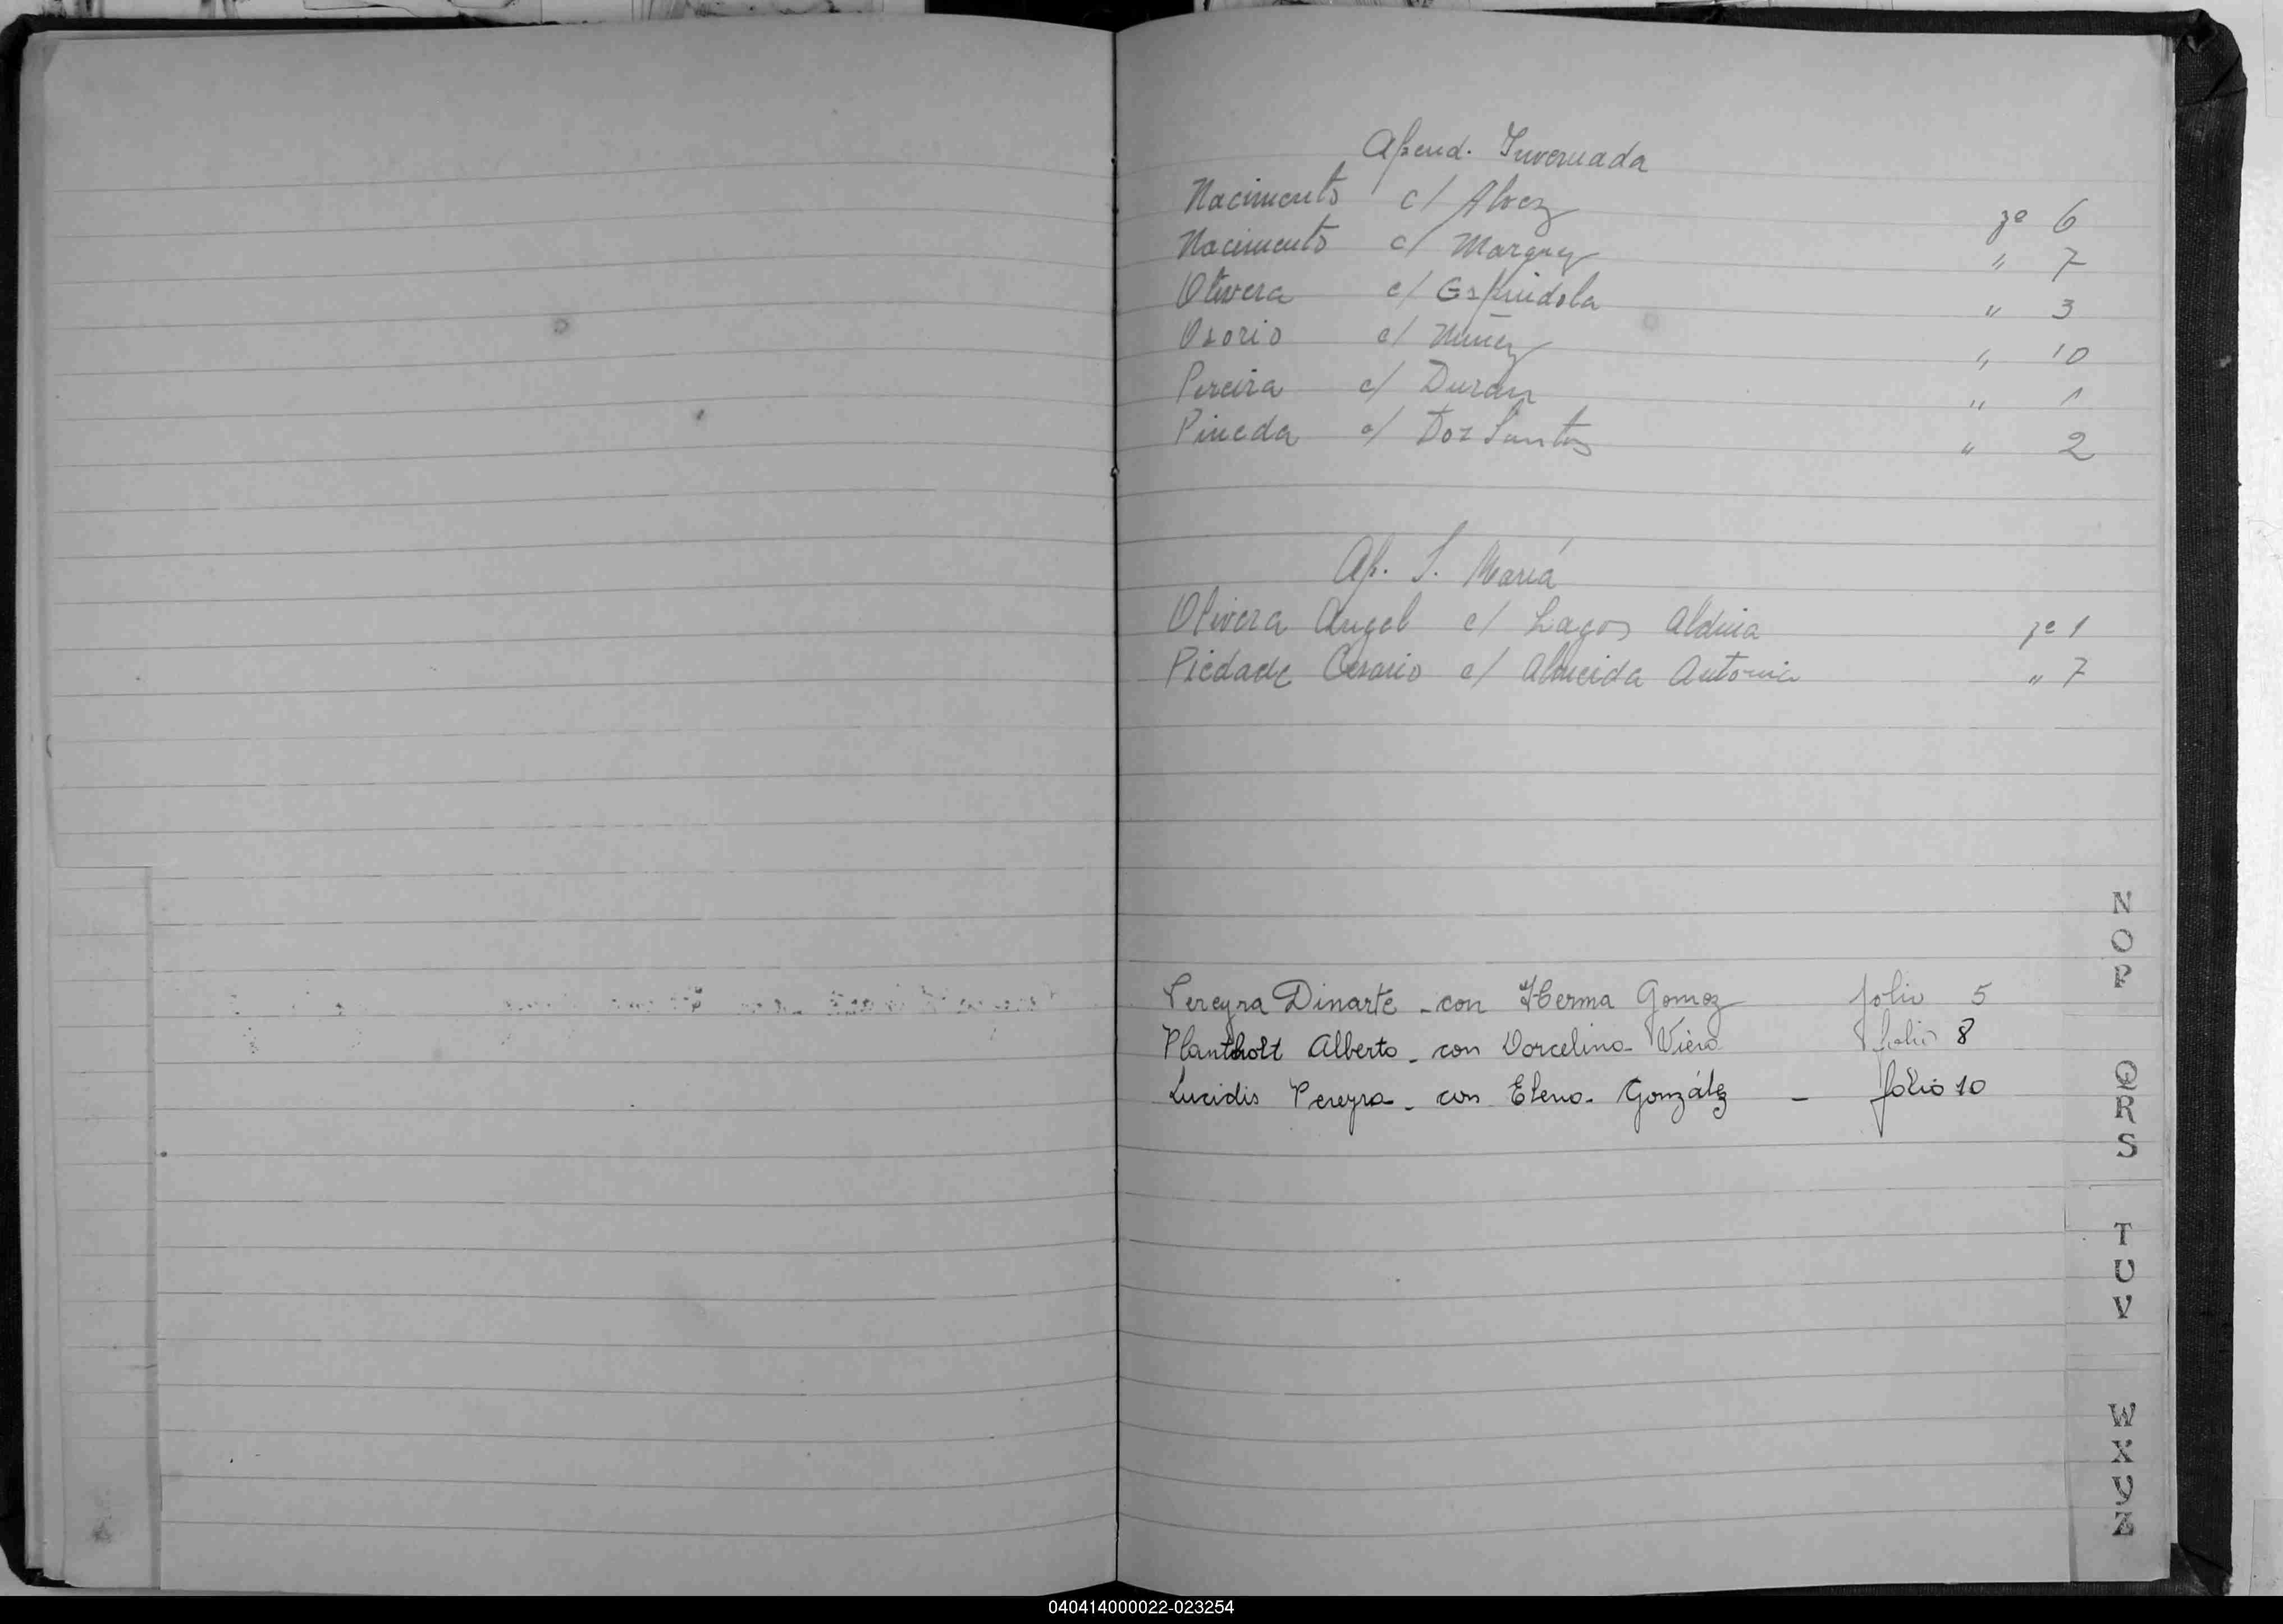 Apend. Invernada
Nacimento c/ Alvez fo 6
Nacimento c/ Marquez " 7
Olivera c/ Espindola " 3
Osorio c/ Nuñez " 10
Pereira c/ Duran " 1
Pineda c/ Dos Santos " 2
Ap. S. María
Olivera Angel c/ Lagos Aldina fo 1
Piedade Cesario c/ Almeida Antonia " 7
Pereyra Dinarte - con Herma Gomez folio 5
Plantholt Alberto - con Dorcelina Viera folio 8
Lucidis Pereyra - con Elena González - folio 10
N
O
P
Q
R
S
T
U
V
W
X
Y
Z
040414000022-023254